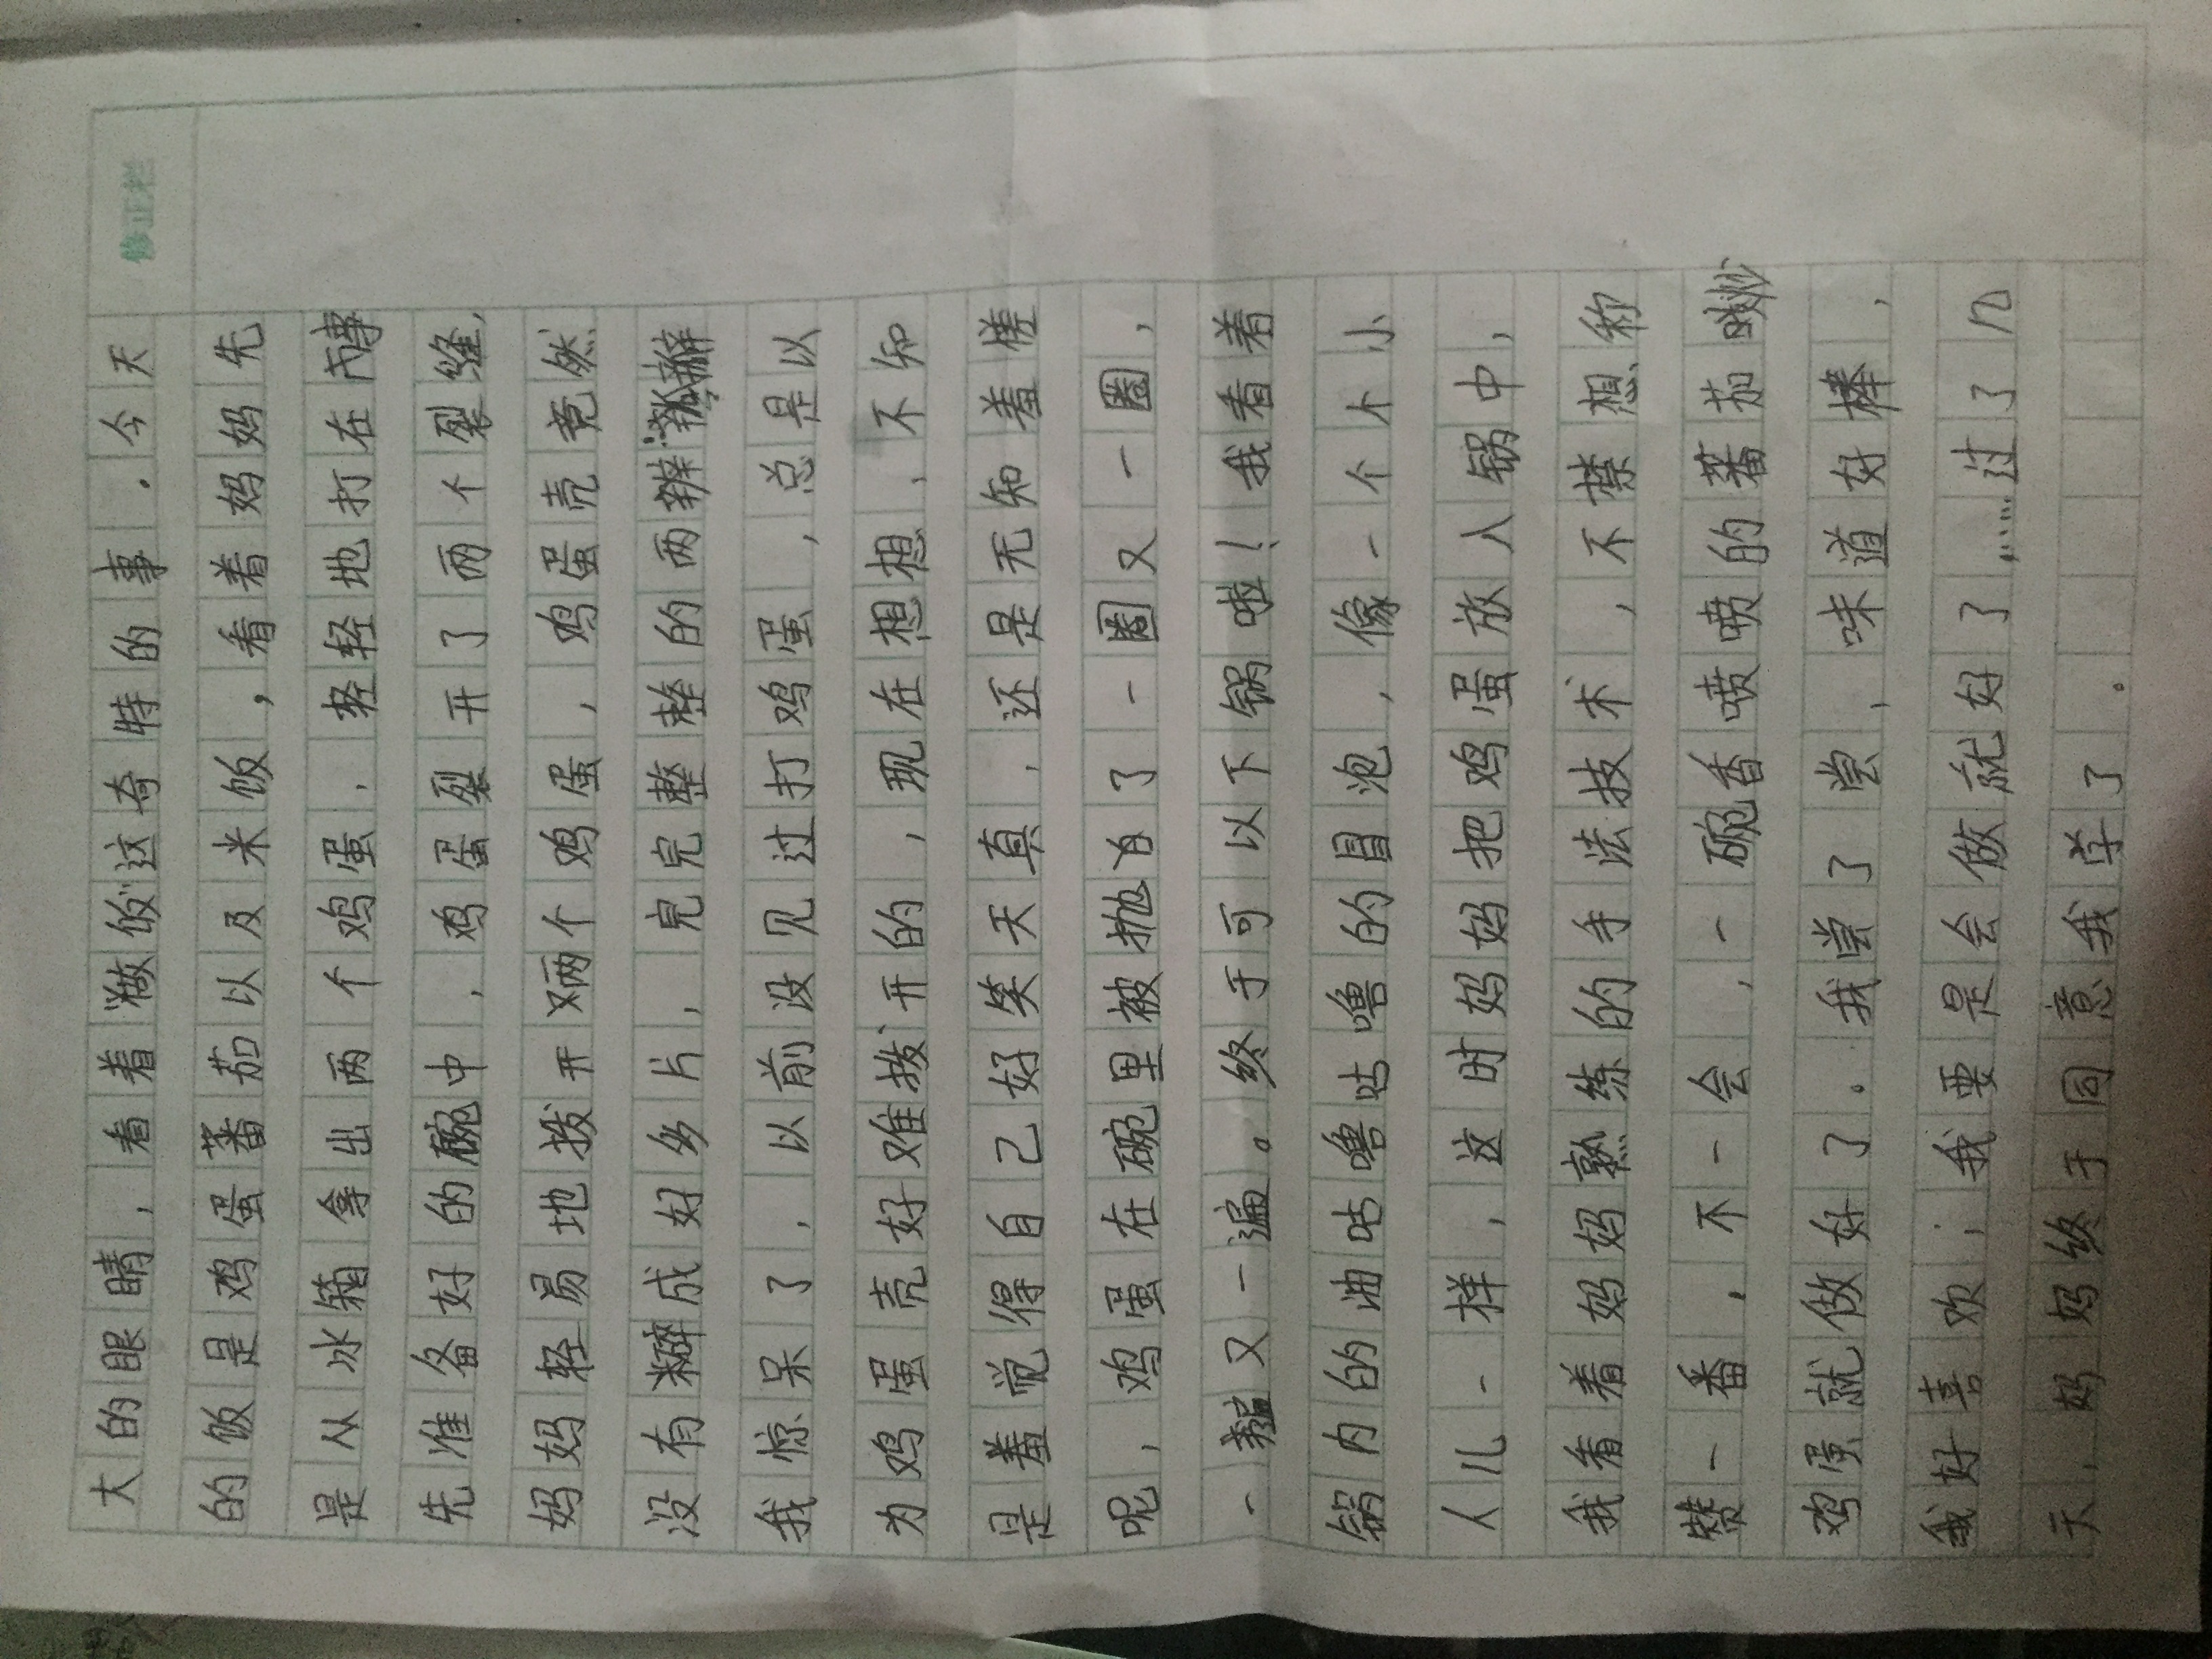 修正栏
大的眼睛，看着做饭这奇特的事．今天
的饭是鸡蛋蕃茄以及米饭，看着妈妈先
是从冰箱拿出两个鸡蛋，轻轻地打在
先准备好的碗中，鸡蛋裂开了两个裂缝，
妈妈轻易地拨开两个鸡蛋，鸡蛋壳竟然
没有碎成好多片，完完整整的两
我惊呆了，以前没见过打鸡蛋，总是以
为鸡蛋壳好难拨开的，现在想想，不知
是羞觉得自己好笑天真，还是无知羞槎
呢，鸡蛋在碗里被抛了一圈又一圈，
一遍又一遍。终于可以下锅啦！我看着
锅内的油咕噜咕噜的冒泡，像一个个小
人儿一样，这时妈妈把鸡蛋放入锅中，
我看着妈妈熟练的手法技术，不禁想称
赞一番，不一会，一碗香喷喷的蕃茄炒
鸡蛋就做好了。我尝了尝，味道好棒，
我好喜欢，我要是会做就好了……过了几
天，妈妈终于同意我学了．